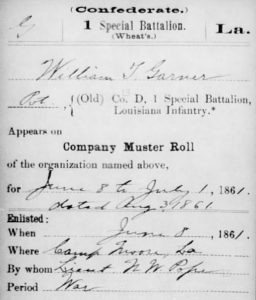 (Confederate.)
G 1 Special Battalion. La.
(Wheat's.)
William T. Garner
Pvt., (Old) Co. D, 1 Special Battalion,
Louisiana Infantry.*
Appears on
Company Muster Roll
of the organization named above,
for June 8 to July 1, 1861.
dated Aug 3, 1861
Enlisted:
When June 8, 1861.
Where Camp Moore, La
By whom Lieut W. W. Pope
Period War